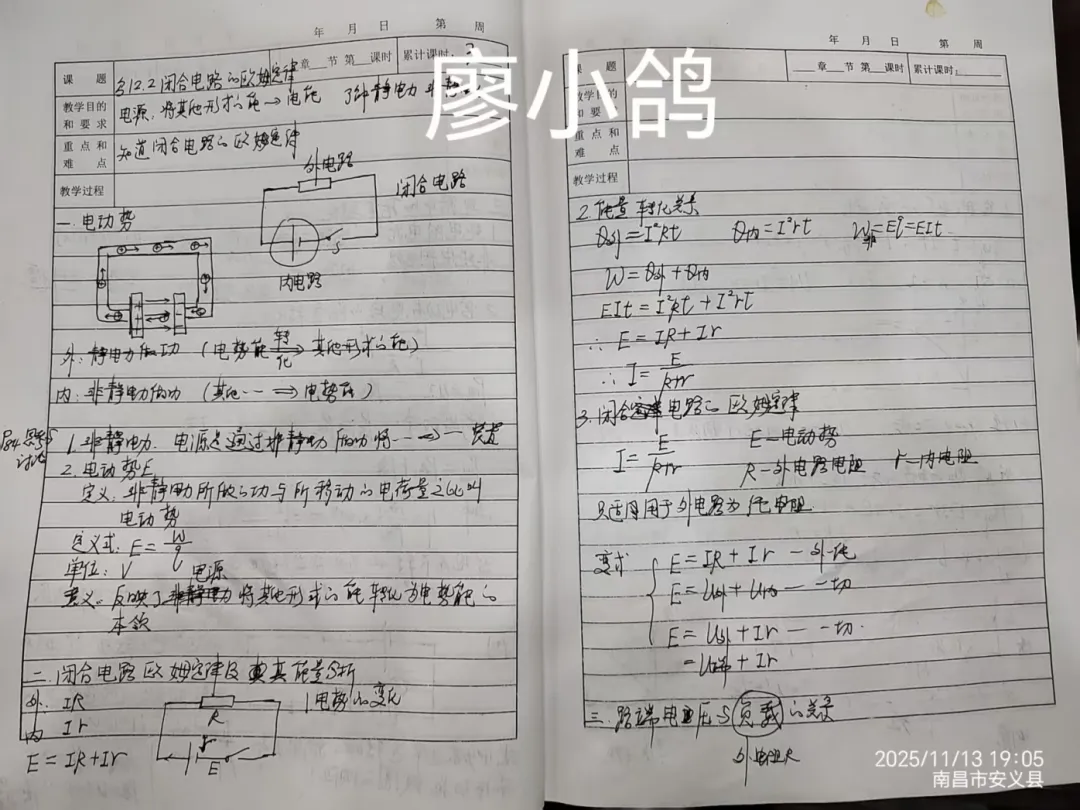 年 月 日 第 周
课题 §12.2闭合电路的欧姆定律 章 节 第 课时 累计课时: 3
教学目的和要求 电源:将其他形式的能→电能 了解静电力 非静电
重点和难点 知道闭合电路的欧姆定律
教学过程
外电路
闭合电路
S
内电路
一.电动势
外:静电力做功 (电势能 转化→ 其他形式的能)
内:非静电力做功 (其他…⇒电势能)
讨论
1.非静电力. 电源是通过非静电力做功将…→…装置
2.电动势E
定义:非静电力所做的功与所移动的电荷量之比叫
电动势
定义式:E=W/q
单位:V
电源
意义:反映了非静电力将其他形式的能转化为电势能的
本领
二.闭合电路欧姆定律及其能量分析
外: IR
内 Ir
E=IR+Ir
R
r
E
1.电势的变化
廖小鸽
年 月 日 第 周
课题 章 节 第 课时 累计课时:
教学目的和要求
重点和难点
教学过程
2.能量转化关系
Q外=I²Rt Q内=I²rt W非=Eq=EIt
W=Q外+Q内
EIt=I²Rt+I²rt
∴ E=IR+Ir
∴ I=E/(R+r)
3.闭合电路的欧姆定律
I=E/(R+r) E—电动势
R—外电路电阻 r—内电阻
只适用于外电路为纯电阻
变式 E=IR+Ir —外纯
E=U外+U内 — 一切
E=U外+Ir — 一切.
=U端+Ir
三.路端电压与负载的关系
外电阻R
2025/11/13 19:05
南昌市安义县